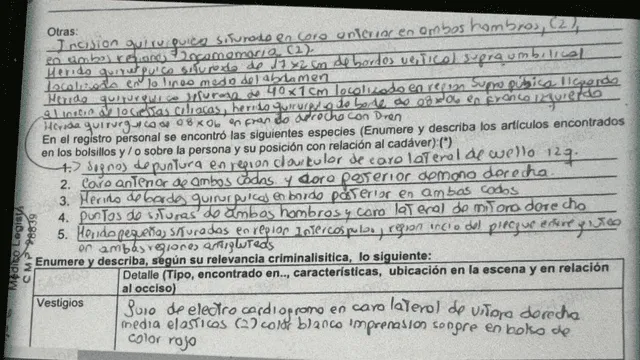 Otras:
Incision quirurgica suturada en cara anterior en ambos hombros, (2),
en ambas regiones Incamomaria (2).
Herida quirurgica suturada de 17x2 cm de bordes vertical supra umbilical
localizada en la linea media del abdomen
Herida quirurgica suturada de 40x1cm localizada en region Supra pubica llegando
al inicio de las crestas iliacas, herida quirurgica de borde de 08x06 en franco izquierdo
Herida quirurgica de 08x06 en franco derecho con Dren
En el registro personal se encontró las siguientes especies (Enumere y describa los artículos encontrados
en los bolsillos y / o sobre la persona y su posición con relación al cadáver):(*)
1. Signos de puntura en region clavicular de cara lateral de cuello izq.
2. Cara anterior de ambos codos y cara posterior de mano derecha.
3. Herida de bordes quirurgicos en borde posterior en ambos codos
4. puntos de suturas de ambos hombros y cara lateral de derecha
5. Herida pequeñas suturadas en region Intercospular, region del pliegue
en ambas regiones
Médico Legista
C M P 28839
Enumere y describa, según su relevancia criminalisitica, lo siguiente:
Detalle (Tipo, encontrado en.., características, ubicación en la escena y en relación
al occiso)
Vestigios
de electro cardiograma en cara lateral de derecha
media elasticas (2) color blanco sangre en bolsa de
color rojo